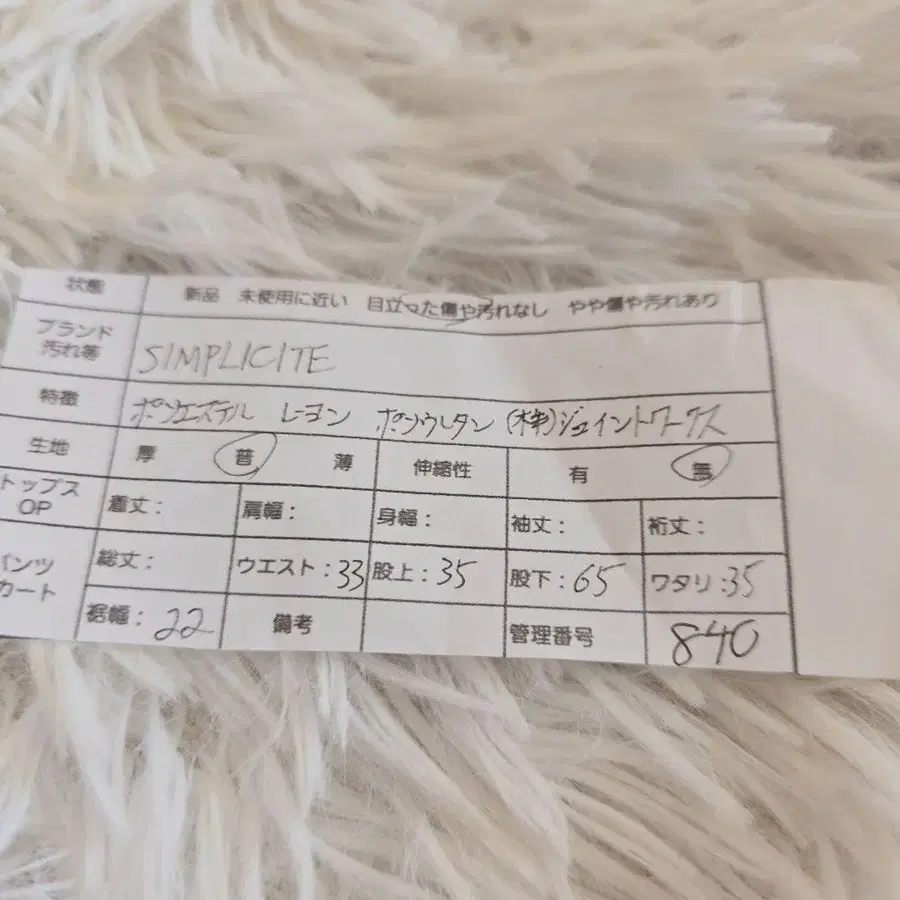 状態 新品 未使用に近い 目立った傷や汚れなし やや傷や汚れあり
ブランド
汚れ等 SIMPLICITE
特徴 ポリエステル レーヨン ポリウレタン (株)ジョイントワークス
生地 厚 普 薄 伸縮性 有 無
トップス
OP 着丈: 肩幅: 身幅: 袖丈: 裄丈:
パンツ
カート 総丈: ウエスト:33 股上:35 股下:65 ワタリ:35
裾幅:22 備考 管理番号 840